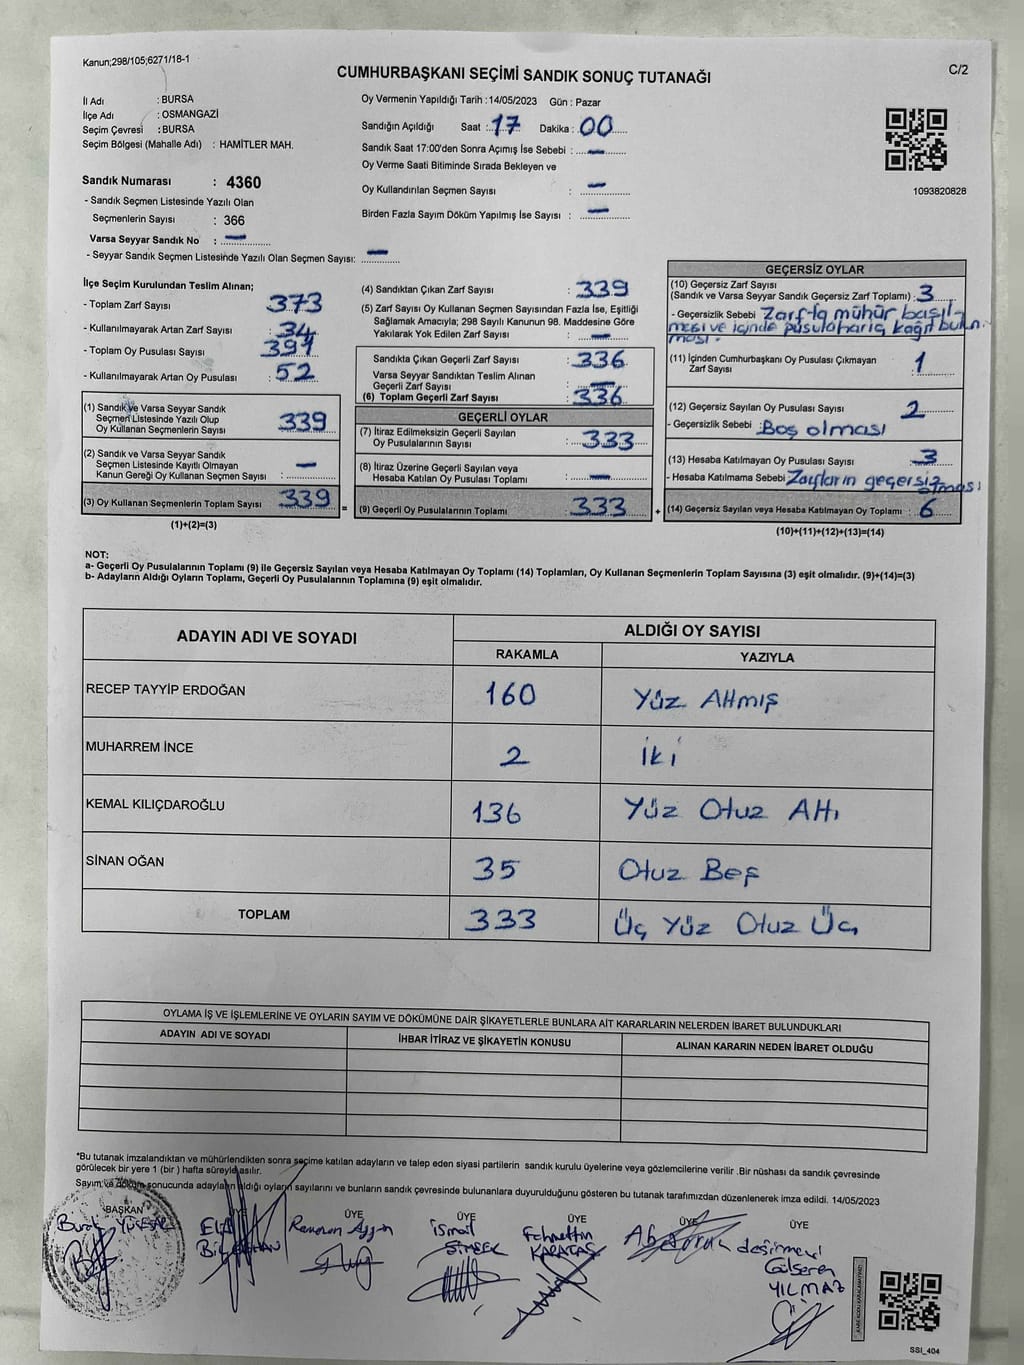 Kanun;298/105;6271/18-1
CUMHURBAŞKANI SEÇİMİ SANDIK SONUÇ TUTANAĞI
C/2
İl Adı : BURSA
İlçe Adı : OSMANGAZİ
Seçim Çevresi : BURSA
Seçim Bölgesi (Mahalle Adı) : HAMİTLER MAH.
Sandık Numarası : 4360
- Sandık Seçmen Listesinde Yazılı Olan
Seçmenlerin Sayısı : 366
Varsa Seyyar Sandık No : —
- Seyyar Sandık Seçmen Listesinde Yazılı Olan Seçmen Sayısı: —
Oy Vermenin Yapıldığı Tarih : 14/05/2023 Gün : Pazar
Sandığın Açıldığı Saat : 17 Dakika : 00
Sandık Saat 17:00'den Sonra Açımış İse Sebebi : —
Oy Verme Saati Bitiminde Sırada Bekleyen ve
Oy Kullandırılan Seçmen Sayısı : —
Birden Fazla Sayım Döküm Yapılmış İse Sayısı : —
1093820828
İlçe Seçim Kurulundan Teslim Alınan;
- Toplam Zarf Sayısı 373
- Kullanılmayarak Artan Zarf Sayısı : 34
- Toplam Oy Pusulası Sayısı : 391
- Kullanılmayarak Artan Oy Pusulası : 52
(1) Sandık ve Varsa Seyyar Sandık
Seçmen Listesinde Yazılı Olup
Oy Kullanan Seçmenlerin Sayısı : 339
(2) Sandık ve Varsa Seyyar Sandık
Seçmen Listesinde Kayıtlı Olmayan
Kanun Gereği Oy Kullanan Seçmen Sayısı : —
(3) Oy Kullanan Seçmenlerin Toplam Sayısı : 339
(1)+(2)=(3)
(4) Sandıktan Çıkan Zarf Sayısı : 339
(5) Zarf Sayısı Oy Kullanan Seçmen Sayısından Fazla İse, Eşitliği
Sağlamak Amacıyla; 298 Sayılı Kanunun 98. Maddesine Göre
Yakılarak Yok Edilen Zarf Sayısı : —
Sandıkta Çıkan Geçerli Zarf Sayısı : 336
Varsa Seyyar Sandıktan Teslim Alınan
Geçerli Zarf Sayısı : —
(6) Toplam Geçerli Zarf Sayısı : 336
GEÇERLİ OYLAR
(7) İtiraz Edilmeksizin Geçerli Sayılan
Oy Pusulalarının Sayısı : 333
(8) İtiraz Üzerine Geçerli Sayılan veya
Hesaba Katılan Oy Pusulası Toplamı : —
(9) Geçerli Oy Pusulalarının Toplamı : 333
GEÇERSİZ OYLAR
(10) Geçersiz Zarf Sayısı
(Sandık ve Varsa Seyyar Sandık Geçersiz Zarf Toplamı) : 3
- Geçersizlik Sebebi : Zarfta mühür basıl-
ması ve içinde pusula hariç kağıt bulun.
ması.
(11) İçinden Cumhurbaşkanı Oy Pusulası Çıkmayan
Zarf Sayısı : 1
(12) Geçersiz Sayılan Oy Pusulası Sayısı : 2
- Geçersizlik Sebebi : Boş olması
(13) Hesaba Katılmayan Oy Pusulası Sayısı : 3
- Hesaba Katılmama Sebebi : Zarfların geçersiz
olması
(14) Geçersiz Sayılan veya Hesaba Katılmayan Oy Toplamı : 6
(10)+(11)+(12)+(13)=(14)
NOT:
a- Geçerli Oy Pusulalarının Toplamı (9) ile Geçersiz Sayılan veya Hesaba Katılmayan Oy Toplamı (14) Toplamları, Oy Kullanan Seçmenlerin Toplam Sayısına (3) eşit olmalıdır. (9)+(14)=(3)
b- Adayların Aldığı Oyların Toplamı, Geçerli Oy Pusulalarının Toplamına (9) eşit olmalıdır.
ADAYIN ADI VE SOYADI
ALDIĞI OY SAYISI
RAKAMLA YAZIYLA
RECEP TAYYİP ERDOĞAN 160 Yüz Altmış
MUHARREM İNCE 2 İki
KEMAL KILIÇDAROĞLU 136 Yüz Otuz Altı
SİNAN OĞAN 35 Otuz Beş
TOPLAM 333 Üç Yüz Otuz Üç
OYLAMA İŞ VE İŞLEMLERİNE VE OYLARIN SAYIM VE DÖKÜMÜNE DAİR ŞİKAYETLERLE BUNLARA AİT KARARLARIN NELERDEN İBARET BULUNDUKLARI
ADAYIN ADI VE SOYADI İHBAR İTİRAZ VE ŞİKAYETİN KONUSU ALINAN KARARIN NEDEN İBARET OLDUĞU
*Bu tutanak imzalandıktan ve mühürlendikten sonra seçime katılan adayların ve talep eden siyasi partilerin sandık kurulu üyelerine veya gözlemcilerine verilir .Bir nüshası da sandık çevresinde
görülecek bir yere 1 (bir ) hafta süreyle asılır.
Sayım ve döküm sonucunda adayların aldığı oyların sayılarını ve bunların sandık çevresinde bulunanlara duyurulduğunu gösteren bu tutanak tarafımızdan düzenlenerek imza edildi. 14/05/2023
BAŞKAN ÜYE ÜYE ÜYE ÜYE ÜYE
Ramazan
İsmail
ŞİMŞEK
Fahrettin
KARATAŞ
değirmenci
Gülseren
YILMAZ
SSİ_404